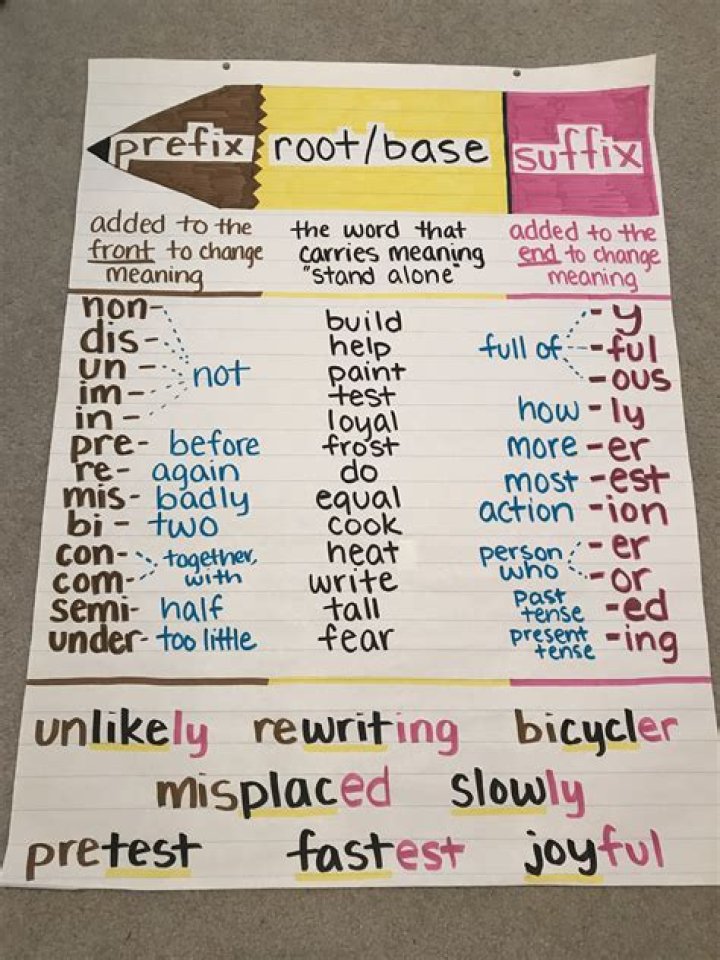 prefix root/base suffix
added to the
front to change
meaning
the word that
carries meaning
"stand alone"
added to the
end to change
meaning
non-
dis-
un-
im-
in-
not
pre- before
re- again
mis- badly
bi- two
con-
com-
together,
with
semi- half
under- too little
build
help
paint
test
loyal
frost
do
equal
cook
heat
write
tall
fear
full of
-y
-ful
-ous
how -ly
more -er
most -est
action -ion
person
who
-er
-or
past
tense -ed
present
tense -ing
unlikely rewriting bicycler
misplaced slowly
pretest fastest joyful